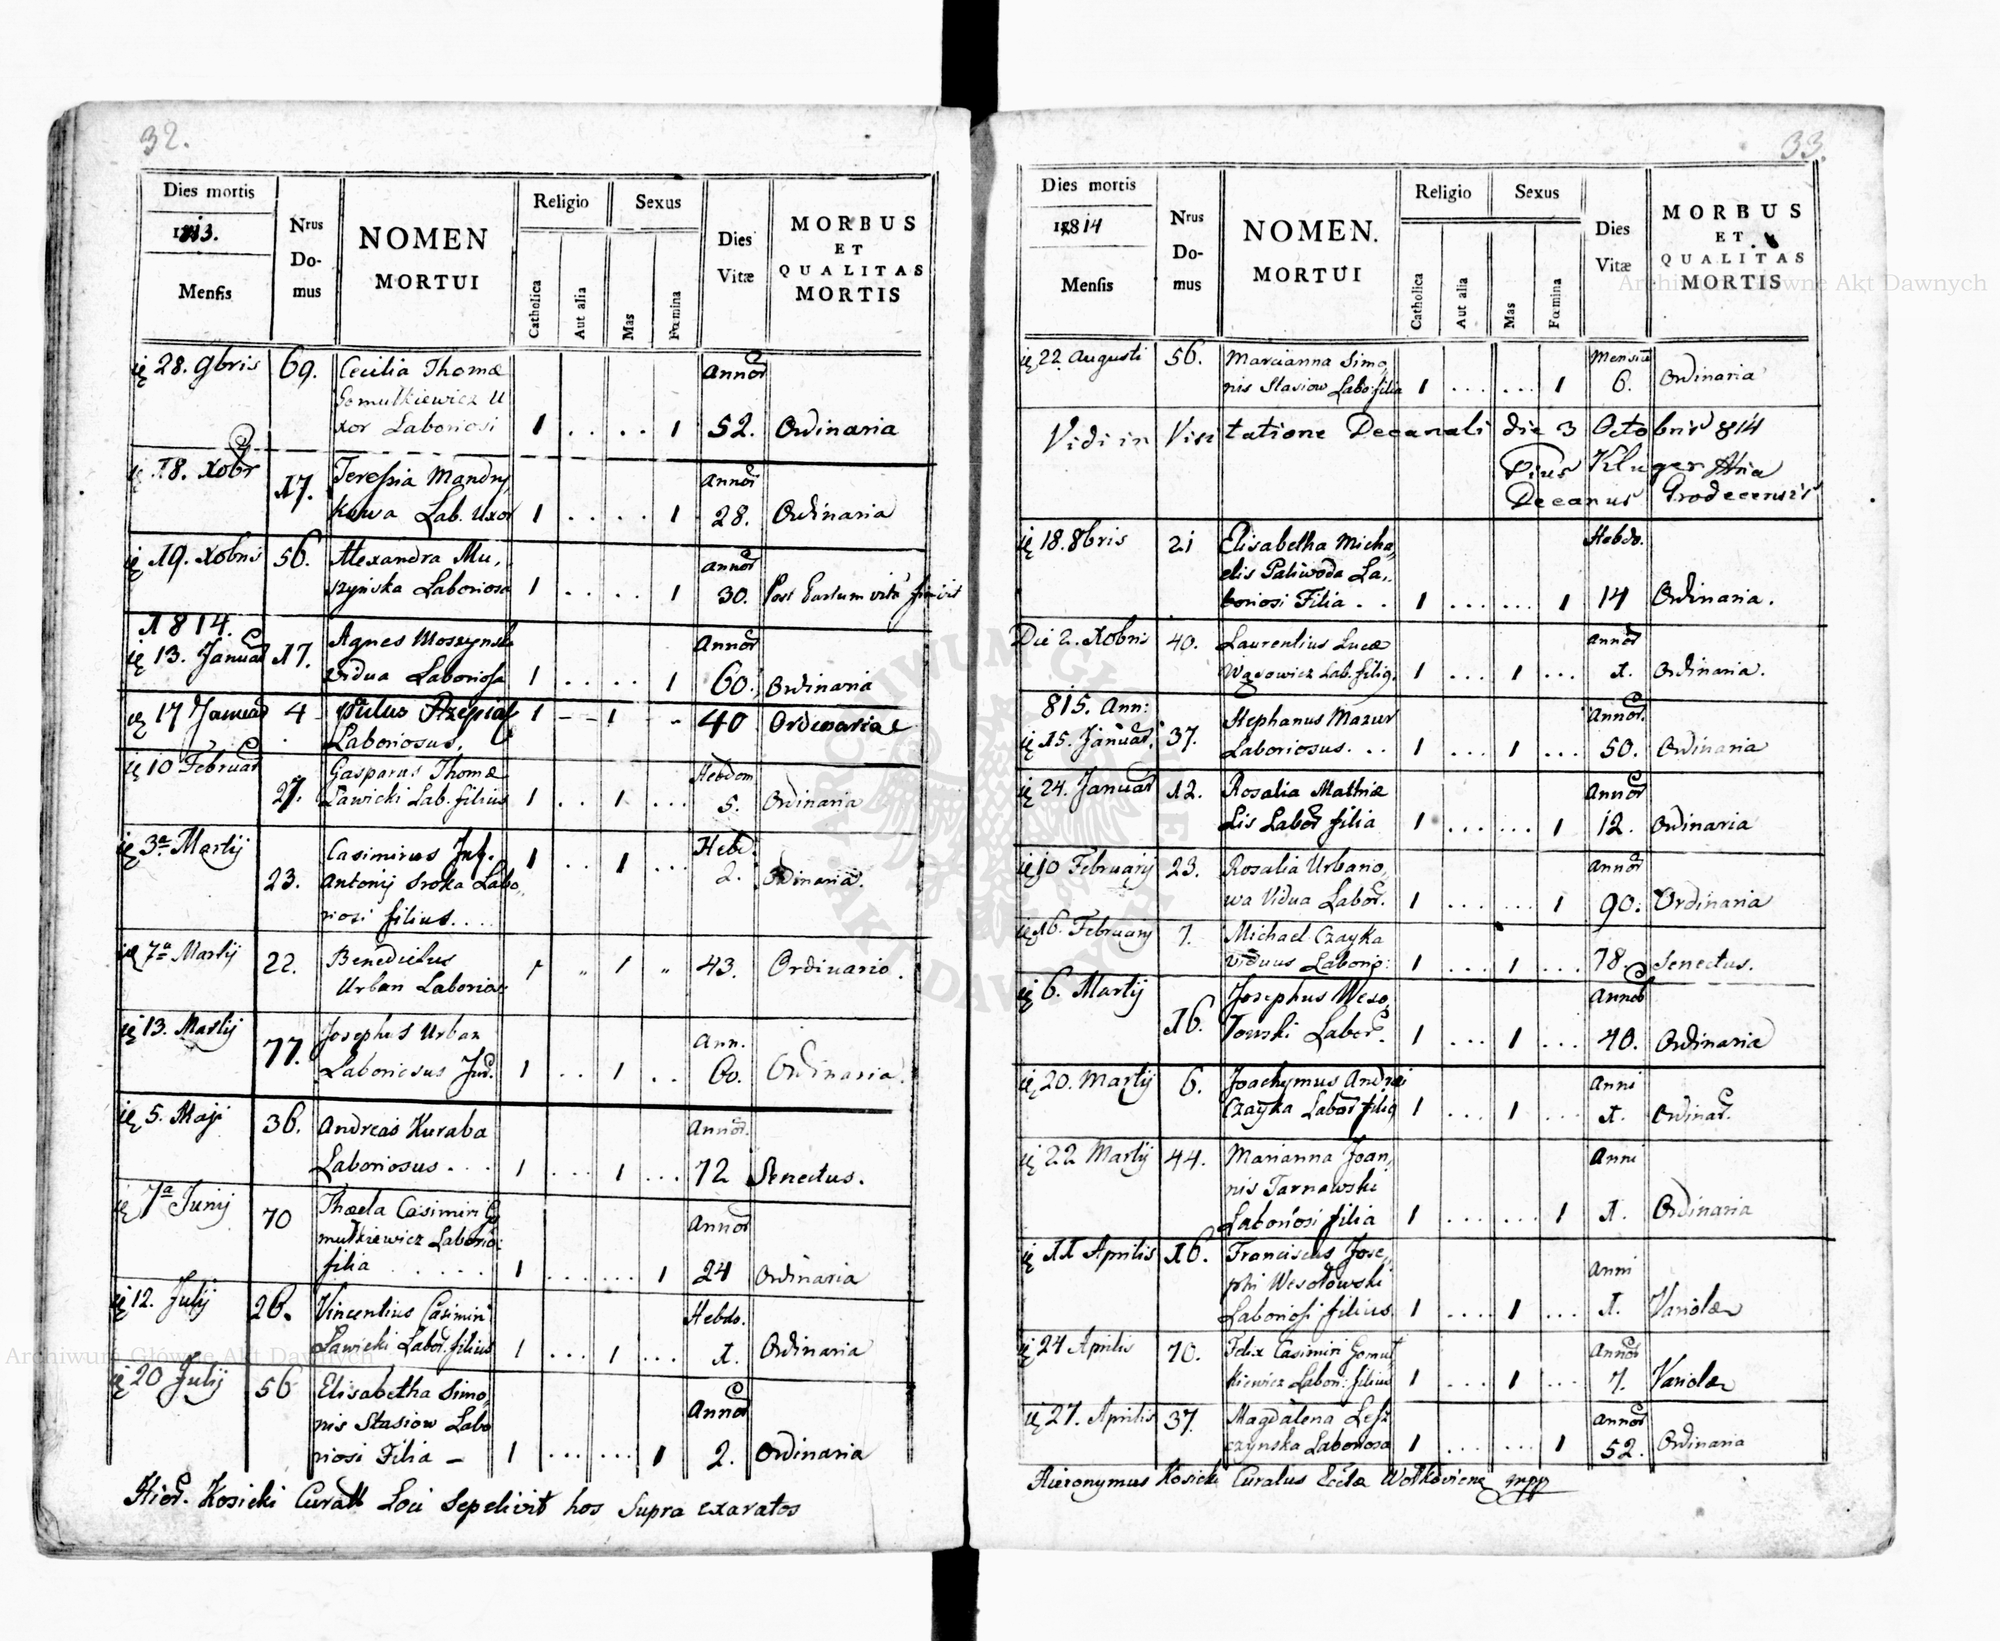 32.
Dies mortis
1813.
Mensis
Nrus
Do-
mus
NOMEN
MORTUI
Religio
Catholica
Aut alia
Sexus
Mas
Fœmina
Dies
Vitæ
MORBUS
ET
QUALITAS
MORTIS
28. 9bris 69. Cecilia Thomæ Annor
Gomułkiewicz U
xor Laboriosi 1 . . . . 1 52. Ordinaria
18. Xobr 17. Teressia Mandry, Annor
kowa Lab. Uxor 1 . . . . 1 28. Ordinaria
19. Xobris 56. Alexandra Mu, Annor
szyńska Laboriosa 1 . . . . 1 30. Post Partum vita finivit
1814.
13. Januar 17. Agnes Moszynska Annor
vidua Laboriosa 1 . . . . 1 60. Ordinaria
17 Januar 4 1 - - 1 - 40 Ordinariae
Laboriosus.
10 Februar 27. Gasparus Thomæ Hebdom
Ławicki Lab. filius 1 . . 1 . . . 5. Ordinaria
3a Martij 23. Casimirus Jos. 1 . . 1 . . . Hebd. 2. Ordinaria.
Antonij Sroka Labo,
riosi filius. . . .
7a Martij 22. Benedictus 1 „ 1 „ 43. Ordinario.
Urban Laborios
13. Martij 77. Josephus Urban Ann.
Laboriosus Jud. 1 . . 1 . . 60. Ordinaria.
5. Maji 36. Andreas Kuraba Annor.
Laboriosus . . . 1 . . . 1 . . . 72 Senectus.
7a Junij 70 Thæcla Casimiri Go Annor
mułkiewicz Laborio:
filia . . . . . 1 . . . . . . 1 24 Ordinaria
12. Julij 26. Vincentius Casimiri Hebdo.
Ławicki Labor. filius 1 . . . 1 . . . 1. Ordinaria
20 Julij 56 Elisabetha Simo, Annor
nis Stasiow Labo
riosi Filia – 1 . . . . . . 1 2. Ordinaria
Hier. Kosicki Curatt Loci Sepelivit hos Supra exaratos
33.
Dies mortis
1814
Mensis
Nrus
Do-
mus
NOMEN.
MORTUI
Religio
Catholica
Aut alia
Sexus
Mas
Fœmina
Dies
Vitæ
MORBUS
ET
QUALITAS
MORTIS
22 Augusti 56. Marcianna Simo, Mensiu
nis Stasiow Labo: filia 1 . . . . . . 1 6. Ordinaria
Vidi in Visitatione Decanali die 3 Octobris 814
Pius Kluger
Decanus Grodecensis
18. 8bris 21 Elisabetha Micha, Hebdo.
elis Paliwoda La,
boriosi Filia . . 1 . . . . . . 1 14 Ordinaria.
Die 2. Xobris 40. Laurentius Lucæ Annor
Wąsowicz Lab. filig. 1 . . . 1 . . . 1. Ordinaria.
815. Ann:
15. Januar. 37. Stephanus Mazur Annor.
Laboriosus. . . 1 . . . 1 . . . 50. Ordinaria
24. Januar 12. Rosalia Mathiæ Annor
Lis Labor filia 1 . . . . . . 1 12. Ordinaria
10 February 23. Rosalia Urbano, Annor
wa Vidua Labor. 1 . . . . . . 1 90. Ordinaria
16. February 7. Michael Czayka
viduus Laborio: 1 . . . 1 . . . 78. Senectus.
6. Martij 16. Josephus Weso, Annor
łowski Labor. 1 . . . 1 . . . 40. Ordinaria
20. Martij 6. Joachymus Andrei Anni
Czayka Labor filig 1 . . . 1 . . . 1. Ordinar.
22 Martij 44. Marianna Joan, Anni
nis Tarnawski
Laboriosi filia 1 . . . . . . 1 1. Ordinaria
11 Aprilis 16. Franciscus Jose, Anni
phi Wesołowski
Laboriosi filius. 1 . . . 1 . . . 1. Variolæ
24 Aprilis 70. Felix Casimiri Gomuł Annor
kiewicz Labori: filius 1 . . . 1 . . . 7. Variolæ
27. Aprilis 37. Magdalena Lesz Annor
czynska Laboriosa 1 . . . . . . 1 52. Ordinaria
Hieronymus Kosicki Curatus Eccla mpp
Archiwum Główne Akt Dawnych
Archiwum Główne Akt Dawnych
ARCHIWUM GŁÓWNE AKT DAWNYCH